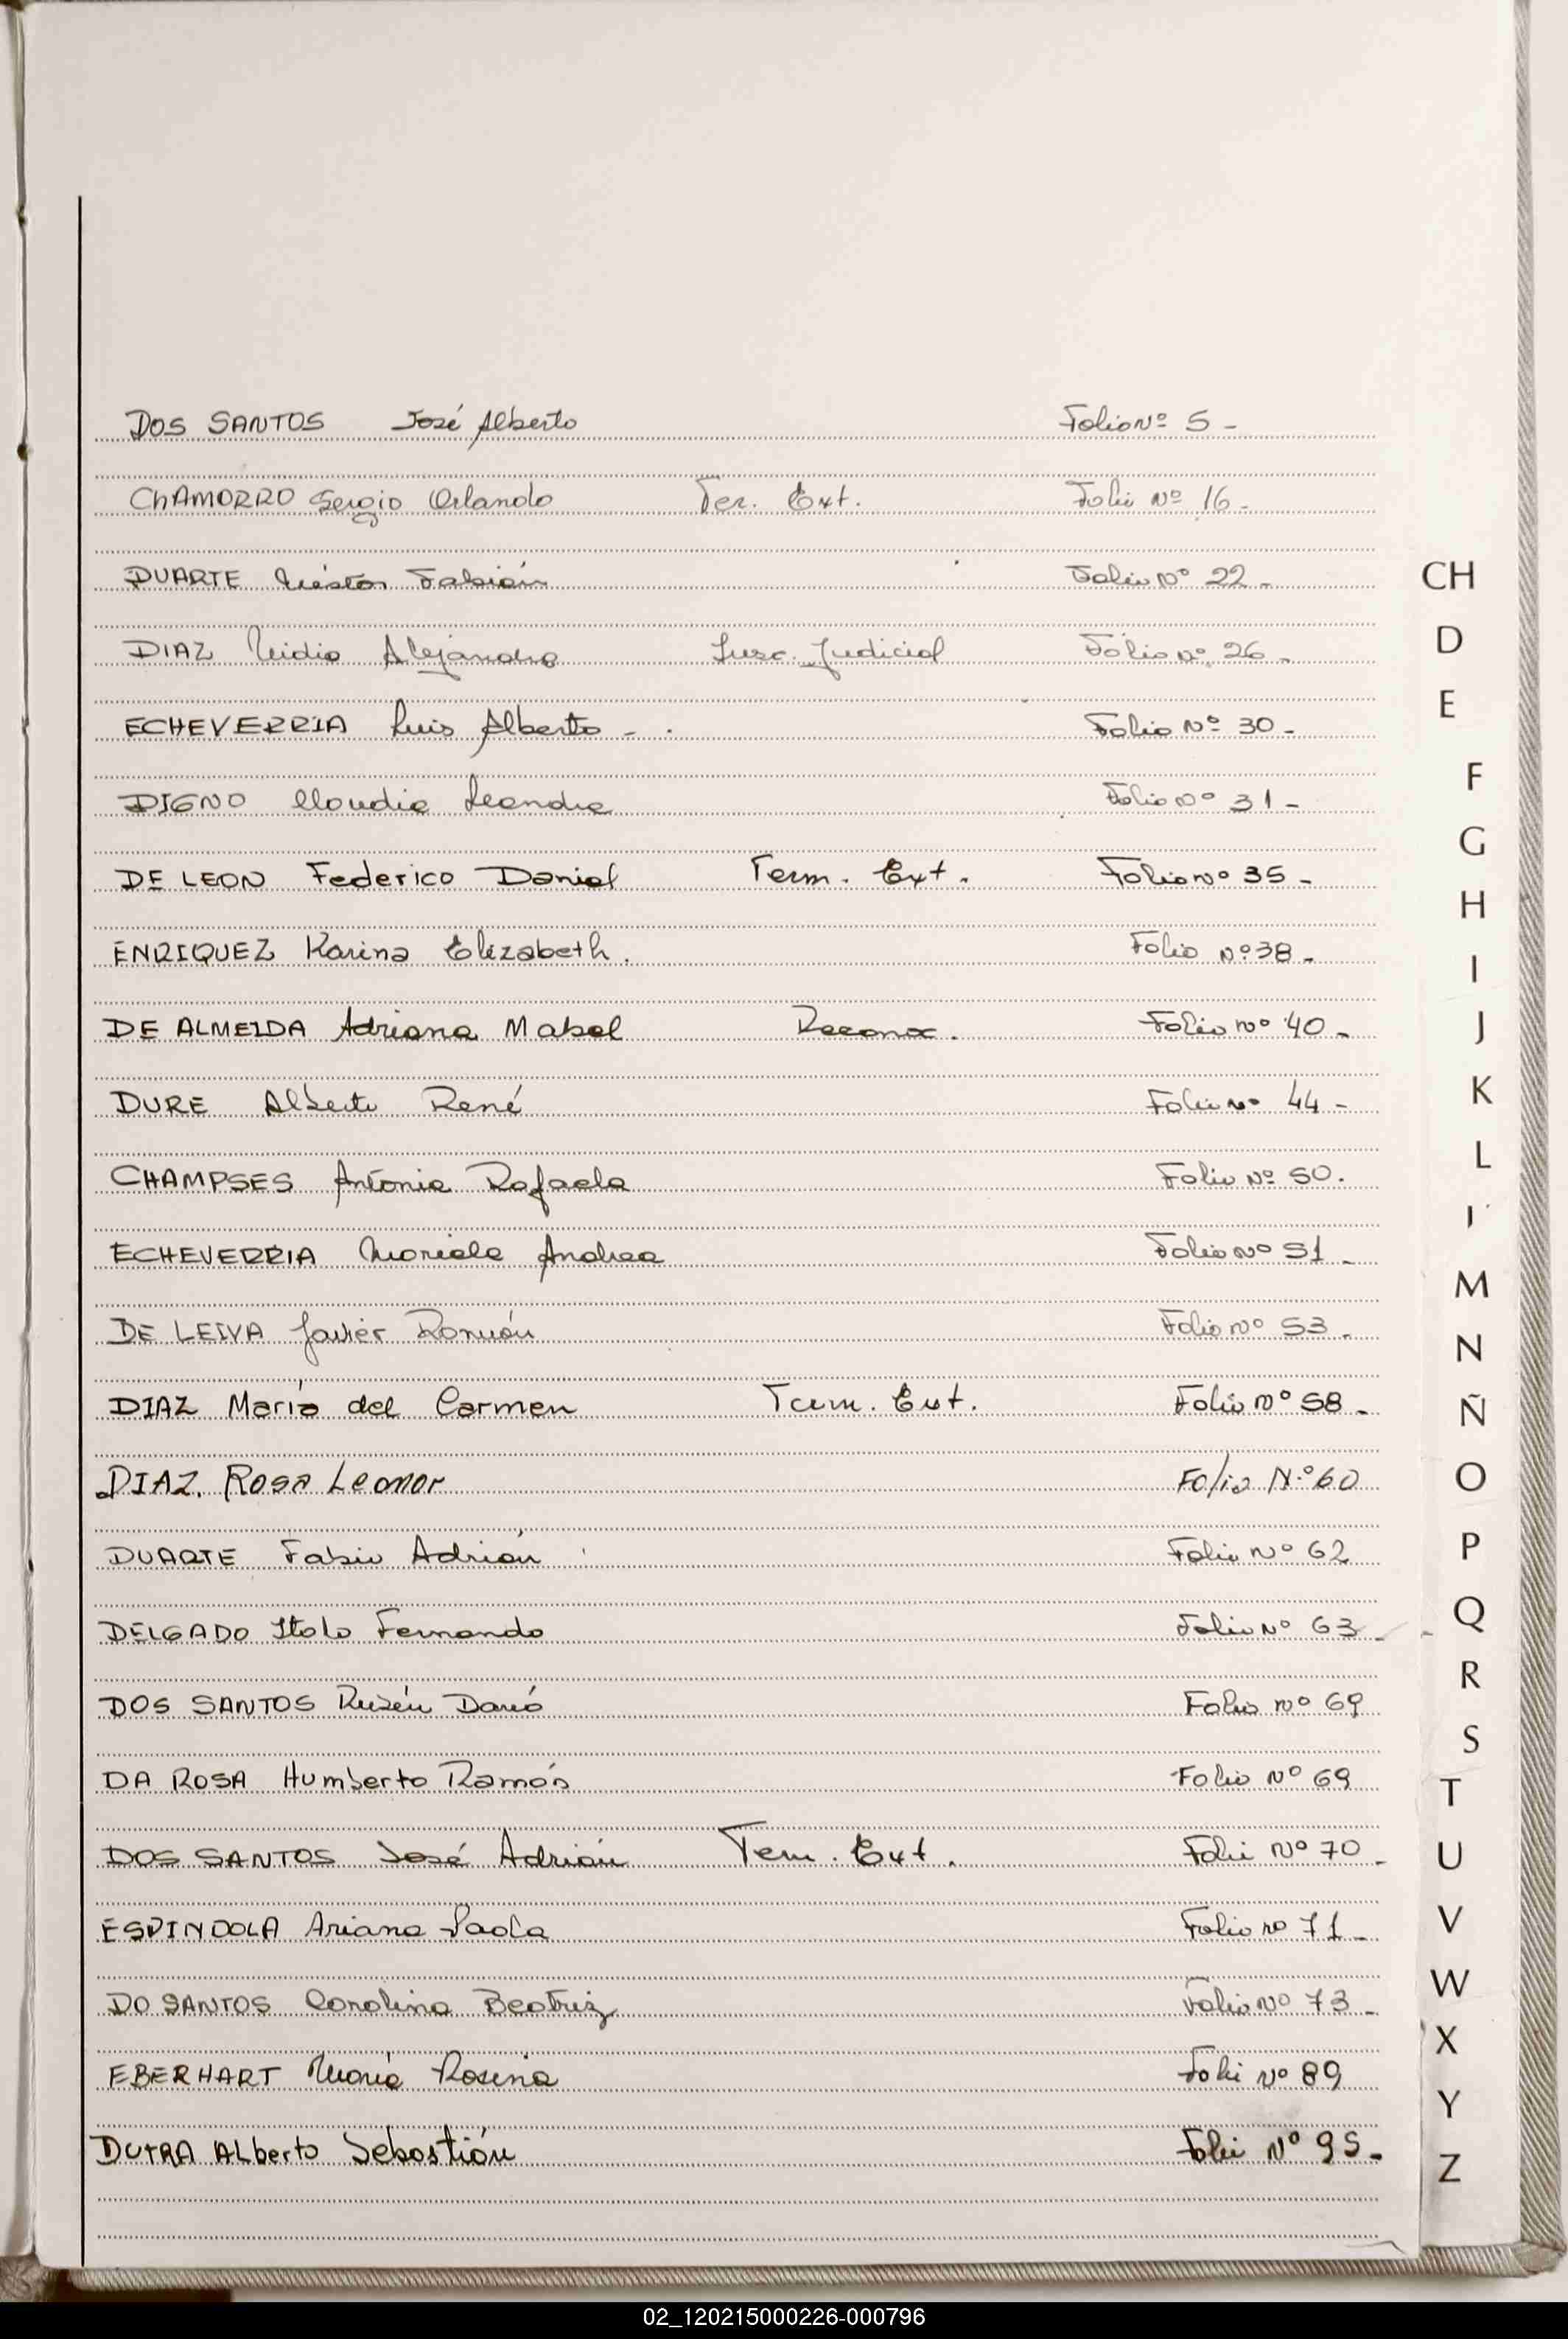 DOS SANTOS José Alberto Folio Nº 5 -
CHAMORRO Sergio Orlando Ter. Ext. Folio Nº 16 -
DUARTE Néstor Fabián Folio Nº 22 -
DIAZ Nidia Alejandra Insc. Judicial Folio Nº 26 -
ECHEVERRIA Luis Alberto - . Folio Nº 30 -
DIGNO Claudia Leandra Folio Nº 31 -
DE LEON Federico Daniel Term. Ext. Folio Nº 35 -
ENRIQUEZ Karina Elizabeth. Folio Nº 38 -
DE ALMEIDA Adriana Mabel Reconoc. Folio Nº 40 -
DURE Alberto René Folio Nº 44 -
CHAMPSES Antonia Rafaela Folio Nº 50.
ECHEVERRIA Mariela Andrea Folio Nº 51 -
DE LEIVA Javier Román Folio Nº 53 -
DIAZ María del Carmen Term. Ext. Folio Nº 58 -
DIAZ. Rosa Leonor Folio Nº 60
DUARTE Fabio Adrián Folio Nº 62
DELGADO Italo Fernando Folio Nº 63 -
DOS SANTOS Rubén Darió Folio Nº 69
DA ROSA Humberto Ramón Folio Nº 69
DOS SANTOS José Adrián Term. Ext. Folio Nº 70 -
ESPINDOLA Ariana Paola Folio Nº 71 -
DO SANTOS Carolina Beatriz Folio Nº 73 -
EBERHART María Rosina Folio Nº 89
DUTRA Alberto Sebastián Folio Nº 95 -
CH
D
E
F
G
H
I
J
K
L
M
N
Ñ
O
P
Q
R
S
T
U
V
W
X
Y
Z
02_120215000226-000796